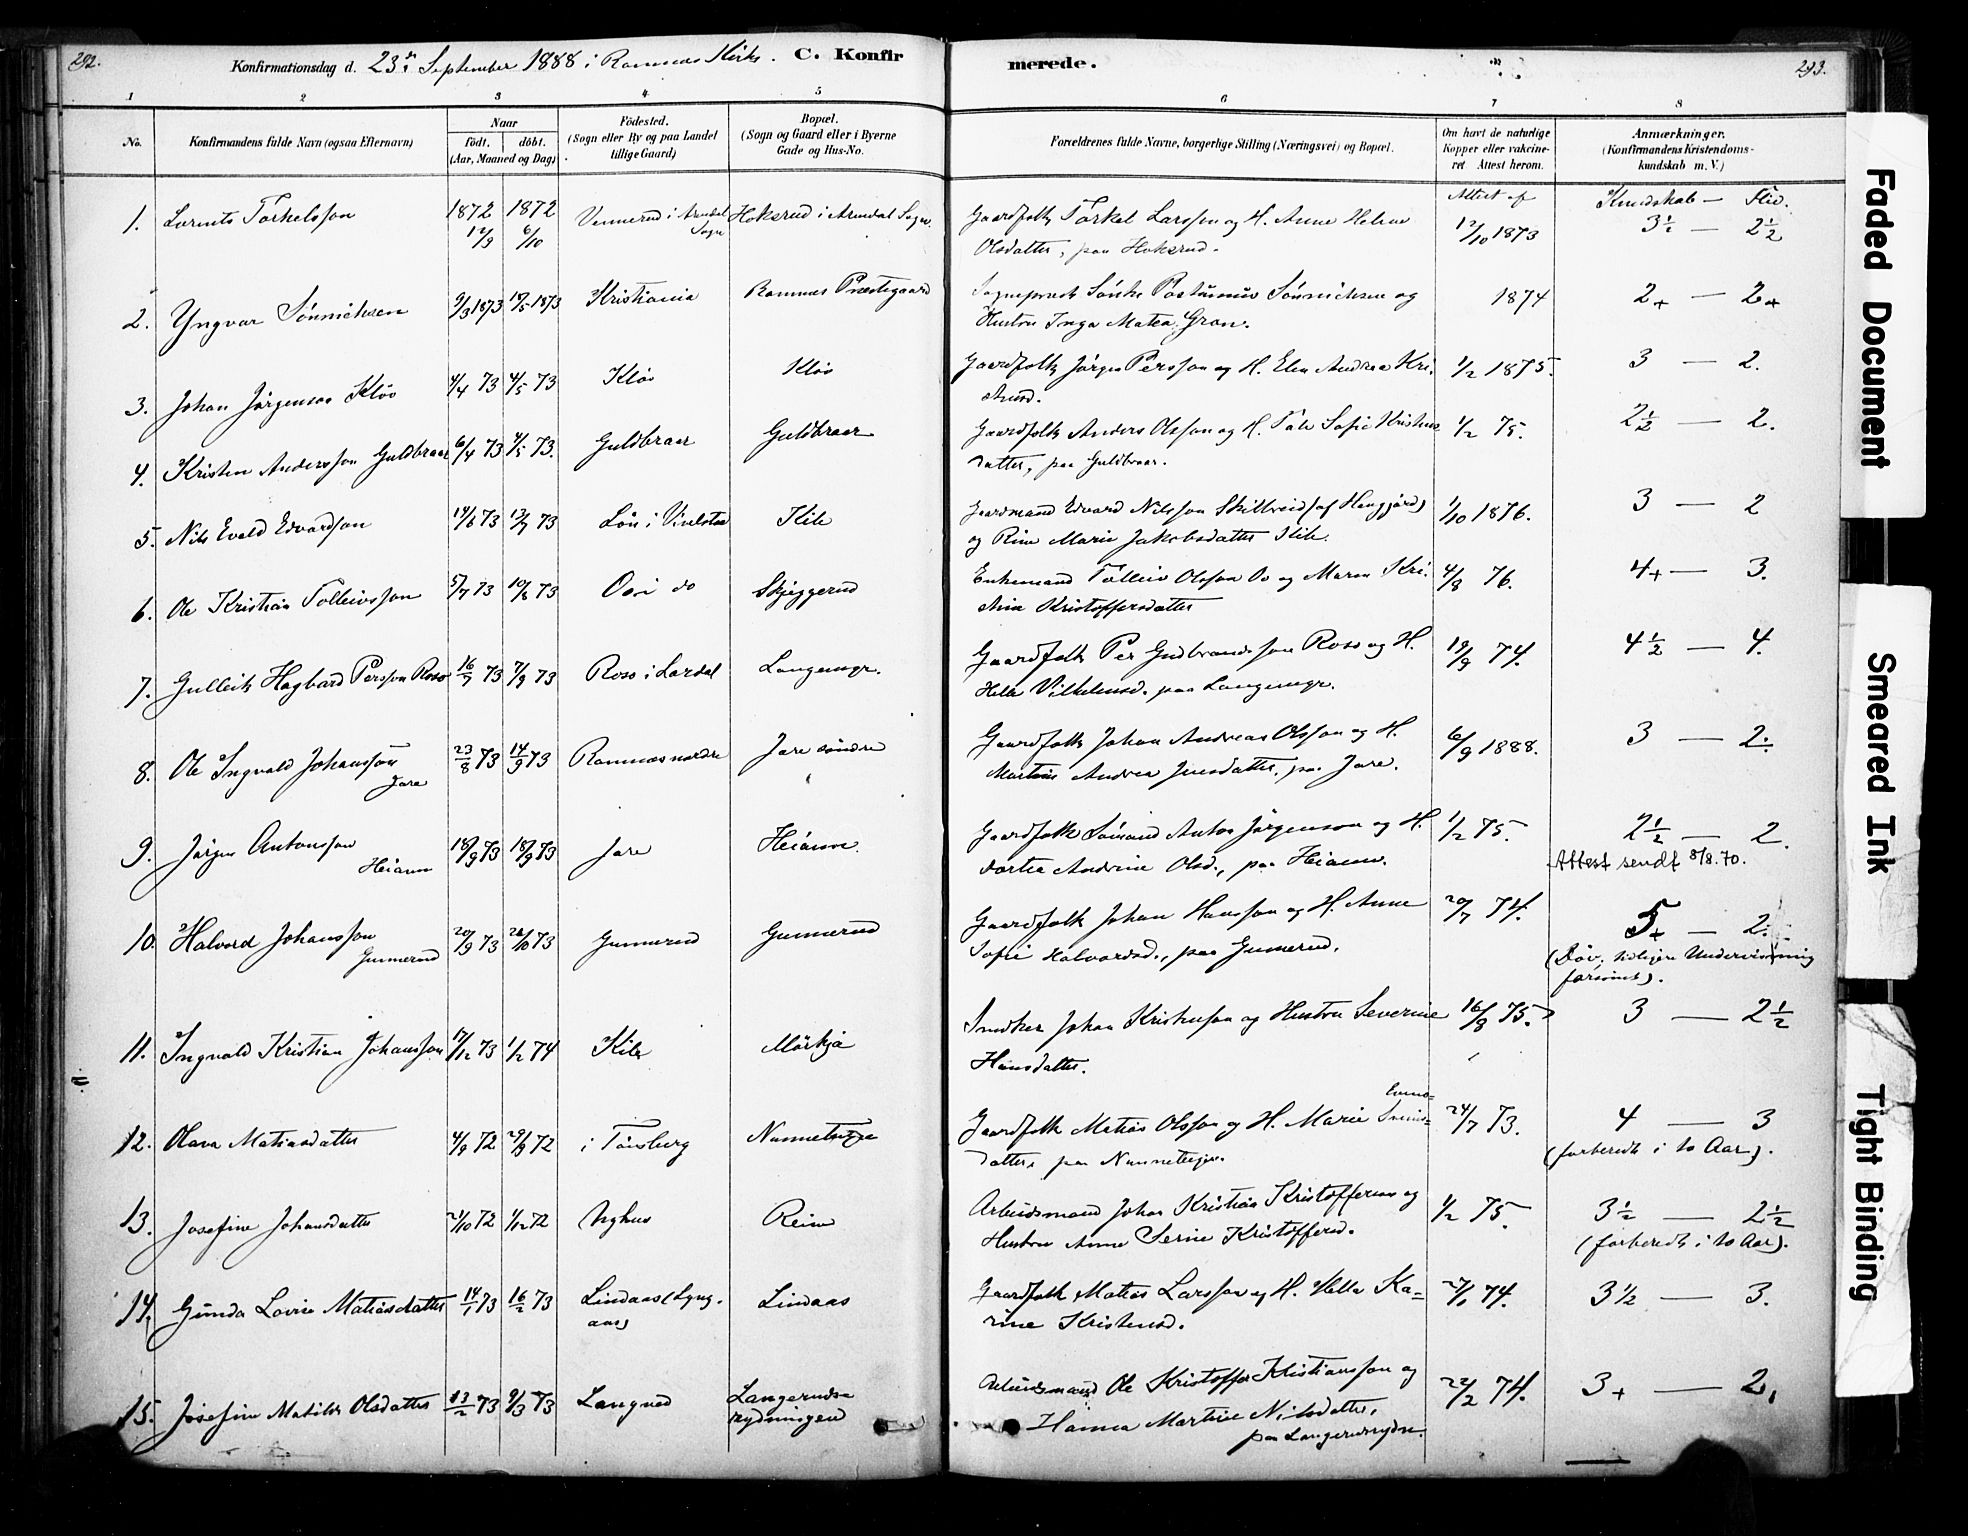 292.
Konfirmationsdag d. 23de September 1888 i Ramnæs Kirke. C. Konfirmerede.
293.
1 2 3 4 5 6 7 8
No. Konfirmandens fulde Navn (ogsaa Efternavn) Naar födt. döbt. (Aar, Maaned og Dag) Födested. (Sogn eller By og paa Landet tillige Gaard) Bopæl. (Sogn og Gaard eller i Byerne Gade og Hus-No. Forældrenes fulde Navne, borgerlige Stilling (Næringsvei) og Bopæl. Om havt de naturlige Kopper eller vakcineret Attest herom. Anmærkninger. (Konfirmandens Kristendomskundskab m. V.)
Attest af Kundskab — Flid.
1. Lorents Torkelsson 1872 12/9 1872 6/10 Vennerud i Arendal Sogn Hoksrud i Arendal Sogn. Gaardfolk Torkel Larsson og H. Anne Helene 12/10 1873 3½ — 2½
Olsdatter, paa Hoksrud.
2. Yngvar Sönnichsen 9/3 1873 18/5 1873 Kristiania Ramnæs Præstegaard Sogneprest Sönke Postumus Sönnichsen og 1874 2+ — 2+
Hustru Inga Matea Gran.
3. Johan Jörgensson Klöv 4/4 73 4/5 73 Klöv Klöv Gaardfolk Jörgen Persson og H. Elen Andrea Kri- 1/2 1875. 3 — 2.
stensd.
4. Kristen Andersson Guldbraar 6/4 73 4/5 73. Guldbraar Guldbraar Gaardfolk Anders Olsson og H. Tale Sofie Kristens 1/2 75. 2½ — 2.
datter, paa Guldbraar.
5. Nils Evald Edvardsson 14/6 73 13/7 73 Lön i Vivelstad Kile Gaardmand Edvard Nilsson Skillveid (af Haugjord) 1/10 1876. 3 — 2
og Rine Marie Jakobsdatter Kile.
6. Ole Kristian Tolleivsson 5/7 73 10/8 73 i do Skjeggerud Enkemand Tolleiv Olsson og Maren Kri- 4/8 76. 4+ — 3.
stine Kristoffersdatter
7. Gulleik Hagbard Persson Roso 16/7 73 7/9 73 Roso i Lardal Langemyr. Gaardfolk Per Gudbrandsson Roso og H. 19/9 74. 4½ — 4.
Helle Vilhelmsd. paa Langemyr.
8. Ole Ingvald Johansson 23/8 73 14/9 73 Ramnæs nordre Jare söndre Gaardfolk Johan Andreas Olsson og H. 6/9 1888. 3 — 2.
Jare Martine Andrea Jensdatter, paa Jare.
9. Jörgen Antonsson 18/9 73 18/9 73 Jare Heiamn. Gaardfolk Sömand Anton Jörgensson og H. 1/2 75. 2½ — 2.
Heiamn Dortea Andrine Olsd., paa Heiamn. Attest sendt 8/8.70.
10. Halvord Johansson 20/9 73 26/10 73 Gunnerud Gunnerud Gaardfolk Johan Hansson og H. Anne 20/7 74. 5+ — 2.
Gunnerud Sofie Halvordsd., paa Gunnerud. (Döv, tidligere Undervisning
forsömt).
11. Ingvald Kristian Johansson 17/12 73 1/2 74 Kile Mörkja Snedker Johan Kristensson og Hustru Severine 16/8 75. 3 — 2½
Hansdatter.
12. Olava Matiasdatter 4/9 72 29/9 72 i Tönsberg Nannetteje Gaardfolk Matias Olsson og H. Marie Svends- 24/7 73. 4 — 3
Evens-
datter, paa Nannetteje. (forberedt i to Aar).
13. Josefine Johansdatter 21/10 72 1/12 72 Nyhus Reine Arbeidsmand Johan Kristian Kristoffersen og 1/2 75. 3½ — 2½
Hustru Anne Serine Kristoffersd. (forberedt i to Aar).
14. Gunda Lovise Matiasdatter 14/1 73 16/2 73 Lindaas (Lyng- Lindaas Gaardfolk Matias Larsson og H. Helle Ka- 27/1 74. 3½ — 3.
aas) rine Kristensd.
15. Josefine Matilde Olsdatter 13/2 73 9/3 73 Langrud Langeruds- Arbeidsmand Ole Kristoffer Kristiansson og 22/2 74. 3+ — 2.
rydningen Hanna Martine Nilsdatter,
paa Langerudsrydn.
Faded Document
Smeared Ink
Tight Binding